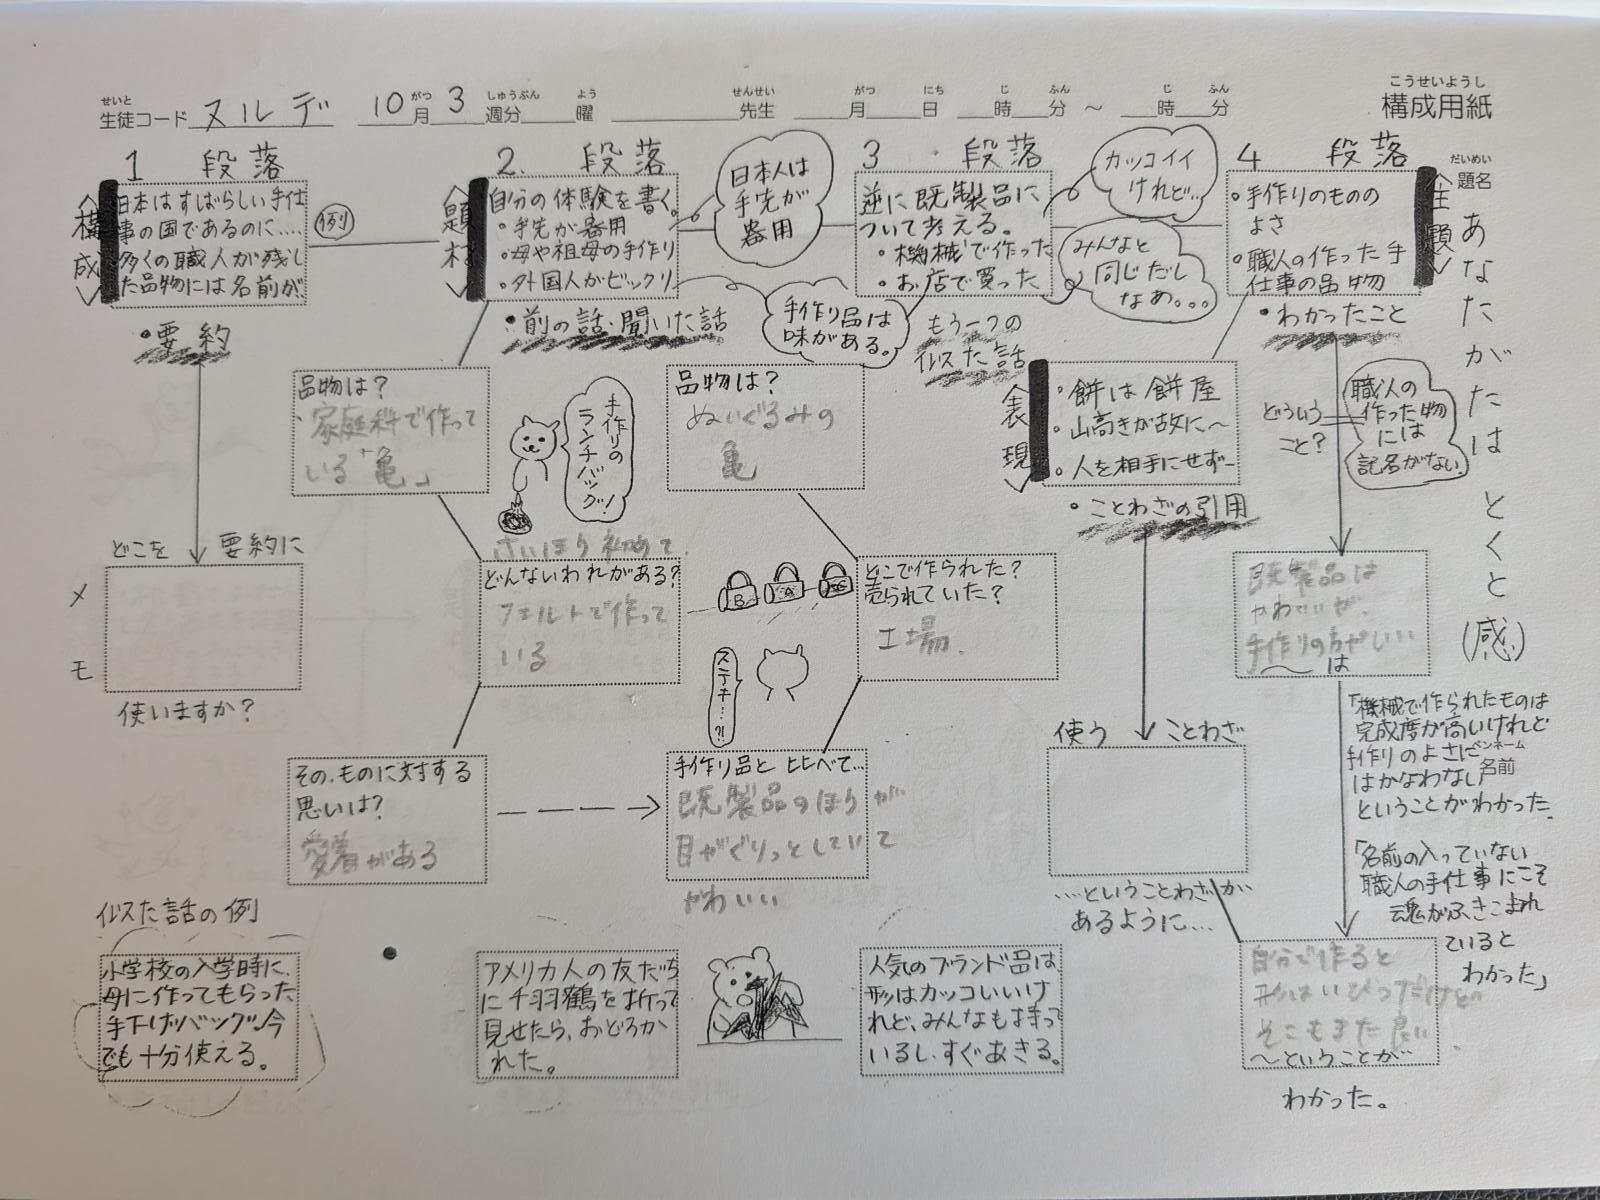 こうせいようし
構成用紙
せいと
生徒コード ヌルデ
がつ しゅうぶん よう
10月3週分 曜
せんせい
先生
がつ にち じ ふん じ ふん
月 日 時 分 ~ 時 分
だいめい
題名
あなたがたはとくと(感)
1 段落
構成
日本はすばらしい手仕
事の国であるのに....
多くの職人が残し
た品物には名前が、
・要約
例
2. 段落
題材
自分の体験を書く。
・手先が器用
・母や祖母の手作り
・外国人がビックリ
・前の話・聞いた話
日本人は
手先が
器用
手作り品は
味がある。
3 段落
逆に既製品に
ついて考える。
・機械で作った
・お店で買った
もう一つの
似た話
カッコイイ
けれど…
みんなと
同じだし
なぁ。。。
4 段落
主題
・手作りのものの
よさ
・職人の作った手
仕事の品物
・わかったこと
どういう
こと?
職人の
作った物
には
記名がない。
表現
・餅は餅屋
・山高きが故に~
・人を相手にせず―
・ことわざの引用
品物は?
家庭科で作って
いる「亀」
手作りの
ランチバッグ!
品物は?
ぬいぐるみの
亀
メモ
どこを 要約に
使いますか?
さいほう初めて
どんないわれがある?
フェルトで作って
いる
B A
どこで作られた?
売られていた?
工場.
ステキ…?!
既製品は
かわいいが、
手作りの方がいい
~は
その.ものに対する
思いは?
愛着がある
手作り品と比べて…
既製品のほうが
目がくりっとしていて
かわいい
使う ことわざ
…ということわざが
あるように…
「機械で作られたものは
完成度が高いけれど
手作りのよさに
はかなわない」
ということがわかった.
ペンネーム
名前
「名前の入っていない
職人の手仕事にこそ
魂がふきこまれ
ていると
わかった」
自分で作ると
形はいびつだけど
そこもまた良い
~ということが…
わかった。
似た話の例
小学校の入学時に、
母に作ってもらった
手下げバッグ。今
でも十分使える。
アメリカ人の友だち
に千羽鶴を折って
見せたら、おどろか
れた。
人気のブランド品は
形はカッコいいけ
れど、みんなも持って
いるし、すぐあきる。